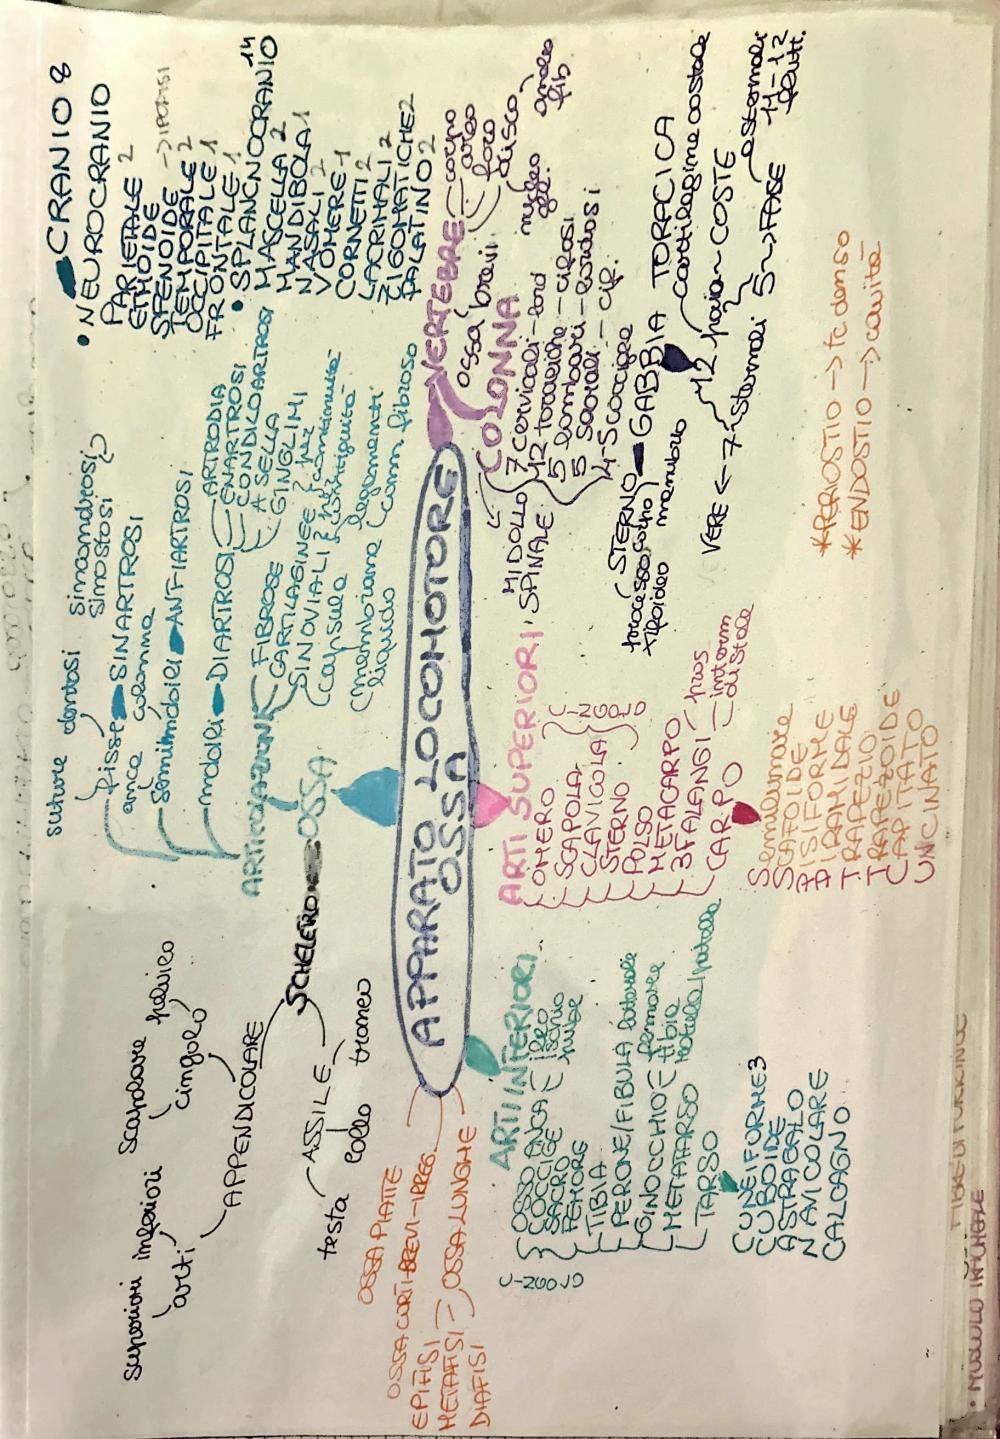 APPARATO LOCOMOTORE
OSSA
SCHELETRO OSSA
APPENDICOLARE
cingolo
scapolare pelvico
arti
superiori inferiori
ASSILE
testa collo tronco
OSSA PIATTE
OSSA CORTI-BREVI-IRREG.
OSSA LUNGHE
EPIFISI
METAFISI
DIAFISI
ARTICOLAZIONI
fisse SINARTROSI
suture dentosi sincondrosi
sinostosi
anca colonna
semimobili ANFIARTROSI
mobili DIARTROSI
ARTRODIA
ENARTROSI
CONDILOARTROSI
A SELLA
GINGLIMI
FIBROSE
CARTILAGINEE } per continuità
SINOVIALI } per contiguità
(capsula legamenti
(membrana (conn. fibroso
liquido
CRANIO 8
• NEUROCRANIO
PARIETALE 2
ETMOIDE
SFENOIDE → IPOFISI
TEMPORALE 2
OCCIPITALE 1
FRONTALE 1
• SPLANCNOCRANIO 14
MASCELLA 2
MANDIBOLA 1
NASALI 2
VOMERE 1
CORNETTI 2
LACRIMALI 2
ZIGOMATICHE 2
PALATINO 2
VERTEBRE
corpo
arco
foro
disco
nucleo anello
fib.
ossa brevi
COLONNA
7 cervicali - lord
12 toraciche - cifosi
5 lombari - lordosi
5 sacrali - cif.
4-5 coccigee
MIDOLLO
SPINALE
STERNO
processo corpo manubrio
xifoideo
GABBIA TORACICA
cartilagine costale
12 paia COSTE
VERE ← 7 sternali 5 → FALSE
asternali
11-12
flutt.
ARTI SUPERIORI
OMERO
SCAPOLA
CLAVICOLA
STERNO
CINGOLO
POLSO
METACARPO
3 FALANGI
pros
interm
distale
CARPO
Semilunare
SCAFOIDE
PISIFORME
PIRAMIDALE
TRAPEZIO
TRAPEZOIDE
CAPITATO
UNCINATO
ARTI INFERIORI
OSSO ANCA
ileo
ischio
pube
COCCIGE
SACRO
CINGOLO
FEMORE
TIBIA
PERONE/FIBULA laterale
GINOCCHIO
femore
tibia
rotula/patella
METATARSO
TARSO
CUNEIFORME 3
CUBOIDE
ASTRAGALO
NAVICOLARE
CALCAGNO
*PERIOSTIO → tc denso
*ENDOSTIO → cavità
• MUSCOLO